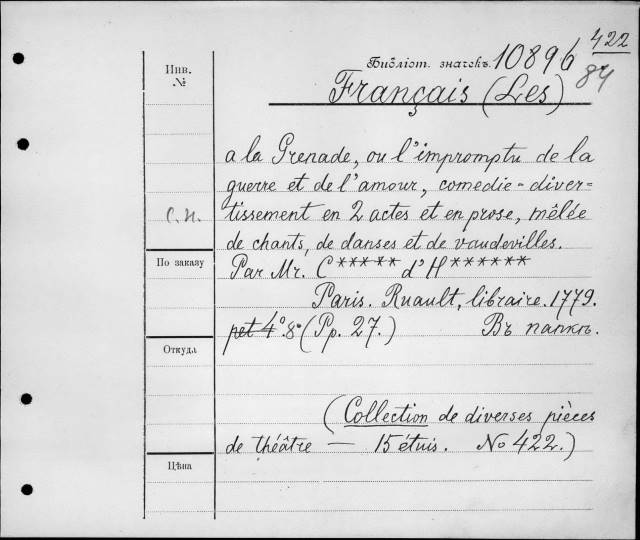 422
84
Библіот. значекъ 10896
Français (Les)
Инв.
№
a la Grenade, ou l'impromptu de la
guerre et de l'amour, comedie-diver=
tissement en 2 actes et en prose, mêlée
С.п.
de chants, de danses et de vaudevilles.
По заказу
Par Mr. C***** d'H******
Paris. Ruault, libraire. 1779.
pet 4º. 8º (Pp. 27.) Въ папкѣ.
Откуда
(Collection de diverses pièces
de théâtre — 15 étuis. No 422.)
Цѣна